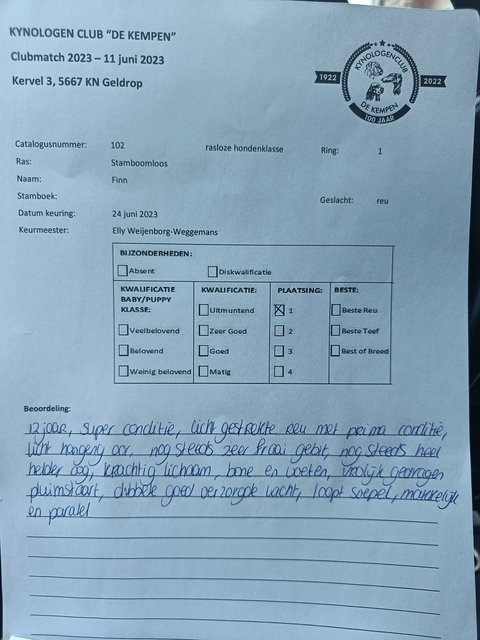 KYNOLOGEN CLUB "DE KEMPEN"
Clubmatch 2023 – 11 juni 2023
Kervel 3, 5667 KN Geldrop
KYNOLOGENCLUB
1922 2022
DE KEMPEN
100 JAAR
Catalogusnummer: 102 rasloze hondenklasse Ring: 1
Ras: Stamboomloos
Naam: Finn
Stamboek: Geslacht: reu
Datum keuring: 24 juni 2023
Keurmeester: Elly Weijenborg-Weggemans
BIJZONDERHEDEN:
Absent Diskwalificatie
KWALIFICATIE BABY/PUPPY KLASSE: KWALIFICATIE: PLAATSING: BESTE:
Uitmuntend 1 Beste Reu
Veelbelovend Zeer Goed 2 Beste Teef
Belovend Goed 3 Best of Breed
Weinig belovend Matig 4
Beoordeling:
12 jaar, super conditie, licht gestrekte reu met prima conditie,
licht hangend oor, nog steeds zeer fraai gebit, nog steeds heel
helder oog, krachtig lichaam, bone en voeten, vrolijk gedragen
pluimstaart, dubbele goed verzorgde vacht, loopt soepel, makkelijk
en paralel